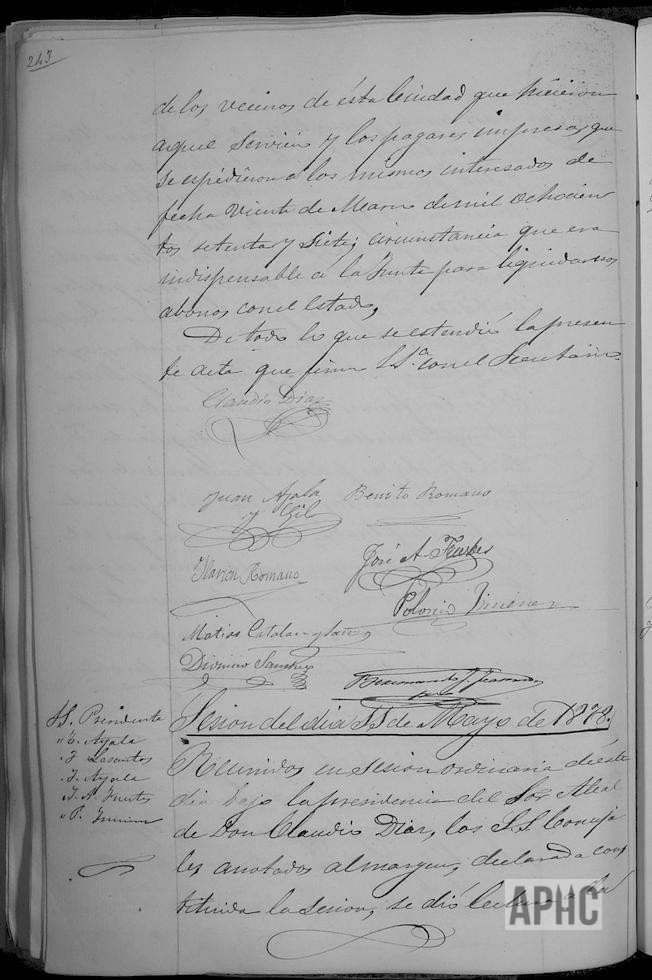 243
de los vecinos de ésta Ciudad que hicieron
aquel Servicio y los pagares impresos que
se espidieron a los mismos interesados de
fecha Veinte de Marzo de mil ochocien
tos setenta y Siete; circunstancia que era
indispensable a la Junta para liquidar sus
abonos con el Estado,
De todo lo que se estendió la presen
te acta que firma S.Sª. con el Secretario
Claudio Diaz
Juan Ayala Benito Romano
y Gil
Ilarion Romano José A. Fuertes
Polonio Jimenez
Matias Catalan y
Dionisio Sanchez
SS. Presidente
" Ayala
" F. Losantos
" J. Ayala
" J. A. Fuertes
" P. Jimenez
Sesion del dia 11 de Mayo de 1878.
Reunidos en sesion ordinaria de este
dia bajo la presidencia del Sor Alcal
de Don Claudio Diaz, los S.S. Conceja
les anotados al margen, declarada cons
tituida la sesion, se dió lectura a la
APHC